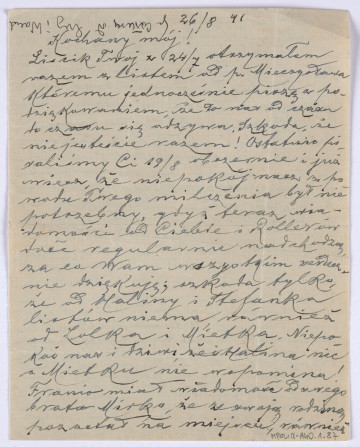 26/8 41
Kochany mój!
Liścik Twój z 24/7 otrzymałem
razem z listem od p. Mieczysława
któremu jednocześnie piszę z po-
dziękowaniem, że to nas od czasu
do czasu się odzywa, szkoda, że
nie jesteście razem! Ostatnio pi-
saliśmy Ci 19/8 obszernie i już
wiesz, że niepokój nasz z po-
wodu Twego milczenia był nie-
potrzebny, gdyż teraz wia-
domości od Ciebie i
regularnie nadchodzą,
za co Wam wszystkim serdecz-
nie dziękuję; szkoda tylko,
że od Haliny i Stefanka
listów niema również
od Lolka i Mietka. Niepo-
koi nas i dziwi że Halina nic
o Mietku nie wspomina!
Franio miał wiadomość
brata Mirka, że ze swoją rodziną
pozostał na miejscu, również